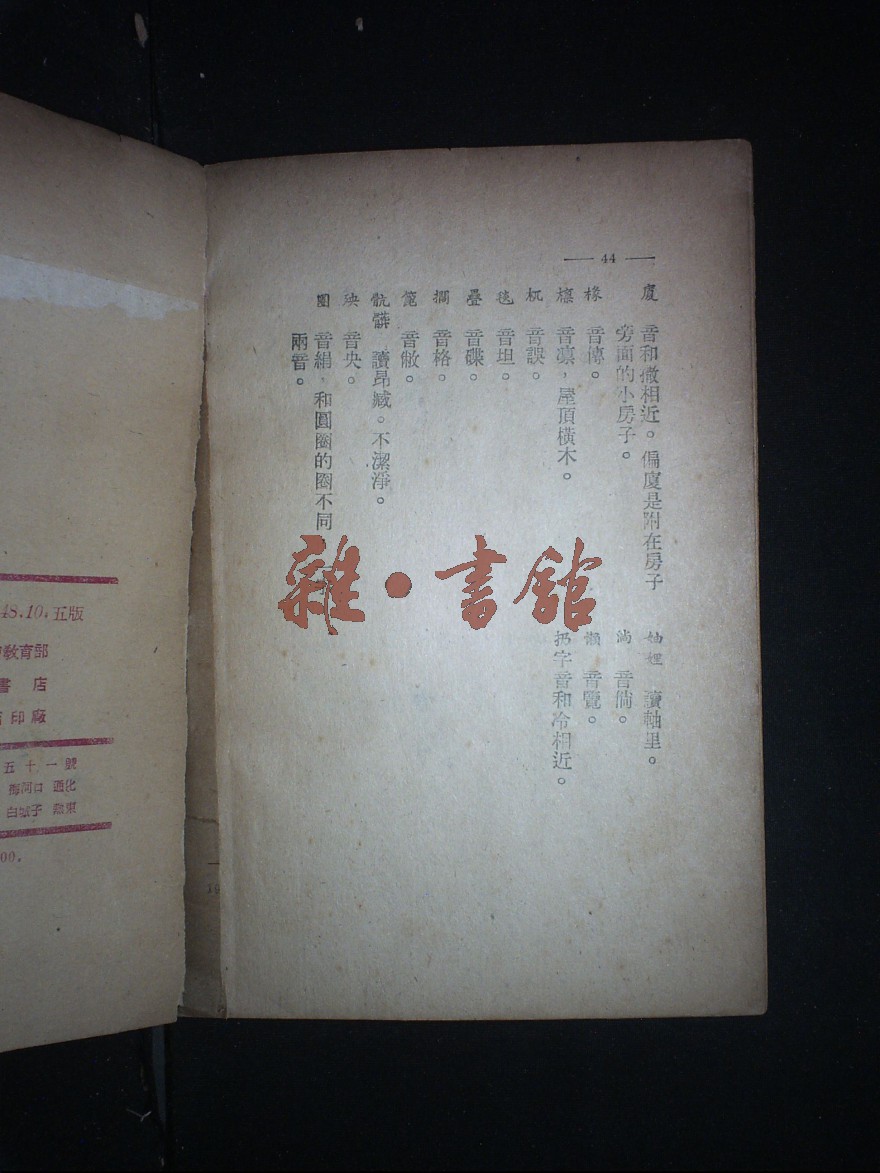 — 44 —
廈 音和傲相近。偏廈是附在房子
旁面的小房子。
椽 音傳。
檩 音凛，屋頂橫木。
杌 音誤。
毯 音坦。
疊 音碟。
擱 音格。
音敝。
骯髒 讀昂臧。不潔淨。
殃 音央。
圈 音絹，和圓圈的圈不同
兩音。
妯娌 讀軸里。
淌 音倘。
懶 音覽。
扔字音和冷相近。
雜·書館
48.10.五版
教育部
書店
印廠
五十一號
梅河口 通化
白城子 熱東
00.